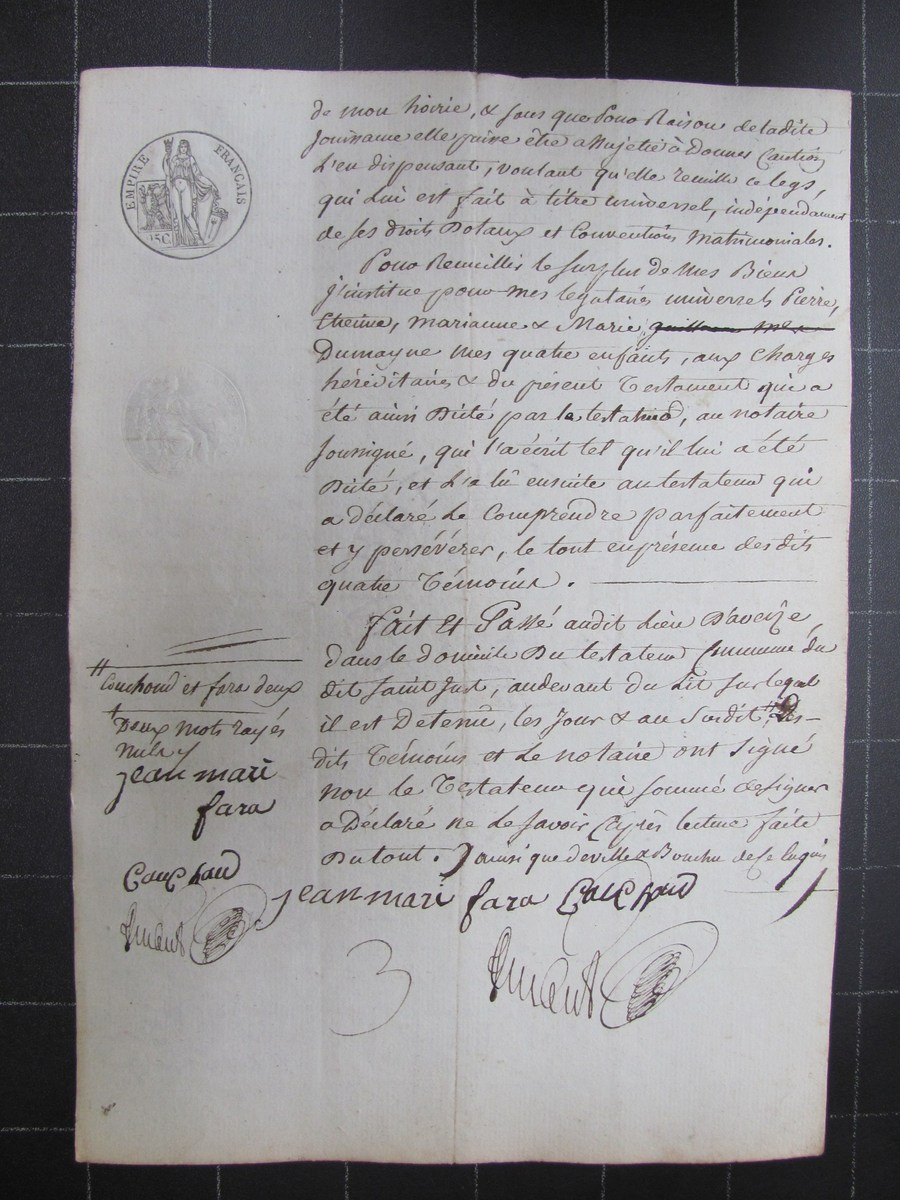 EMPIRE FRANÇAIS
de mon hoirie, & sans que pour Raison de ladite
Jouissance elle puisse être assujetie à Donner Caution
L'en dispensant, voulant qu'elle recuille ce legs,
qui Lui est fait à titre universel, indépendament
de ses droits Dotaux et Conventions Matrimoniales.
Pour Recuillir le surplus de Mes Biens
J'institue pour mes legataires universels Pierre,
Etienne, Marianne & Marie
Dumayne mes quatre enfants, aux Charges
héréditaires & du présent Testament qui a
été ainsi Dicté par le testateur, au notaire
soussigné, qui l'a écrit tel qu'il lui a été
Dicté, et l'a lû ensuite au testateur qui
a déclaré Le Comprendre parfaitement
et y persévérer, le tout en présence des dits
quatre Témoins.
Fait Et Passé audit Lieu D'aveize,
dans le domicile Du testateur Commune du
dit saint Just, au devant du Lit sur lequel
il est Detenu, les Jour & an Susdit, # Les-
dits Témoins et Le notaire ont Signé
non le Testateur qui sommé de signer
a Déclaré ne Le savoir Après lecture faite
Du tout. J ainsi que deville & Bouchu de ce
# Couchoud et fara deux
+ Deux mots rayés
nuls
jean mari
fara
CouChoud
jean mari fara CouChoud
3